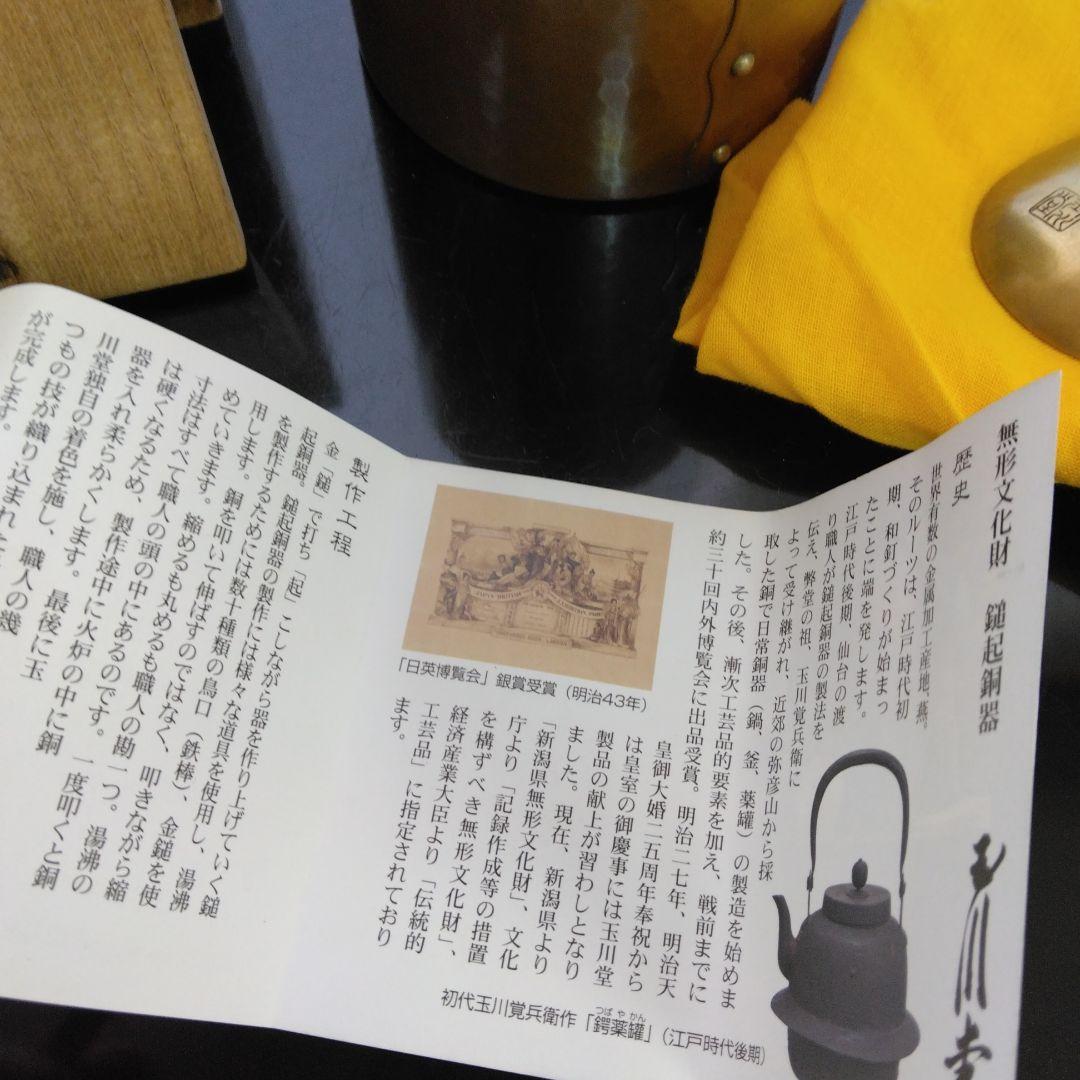 無形文化財　鎚起銅器
玉川堂
歴史
世界有数の金属加工産地、燕。
そのルーツは、江戸時代初
期、和釘づくりが始まっ
たことに端を発します。
江戸時代後期、仙台の渡
り職人が鎚起銅器の製法を
伝え、弊堂の祖、玉川覚兵衛に
よって受け継がれ、近郊の弥彦山から採
取した銅で日常銅器（鍋、釜、薬罐）の製造を始めま
した。その後、漸次工芸品的要素を加え、戦前までに
約三十回内外博覧会に出品受賞。明治二七年、明治天
皇御大婚二五周年奉祝から
は皇室の御慶事には玉川堂
製品の献上が習わしとなり
ました。現在、新潟県より
「新潟県無形文化財」、文化
庁より「記録作成等の措置
を構ずべき無形文化財」、
経済産業大臣より「伝統的
工芸品」に指定されており
ます。
初代玉川覚兵衛作「鍔薬罐」（江戸時代後期）
つば や かん
「日英博覧会」銀賞受賞（明治43年）
製作工程
金「鎚」で打ち「起」こしながら器を作り上げていく鎚
起銅器。鎚起銅器の製作には様々な道具を使用し、湯沸
を製作するためには数十種類の鳥口（鉄棒）、金鎚を使
用します。銅を叩いて伸ばすのではなく、叩きながら縮
めていきます。縮めるも丸めるも職人の勘一つ。湯沸の
寸法はすべて職人の頭の中にあるのです。一度叩くと銅
は硬くなるため、製作途中に火炉の中に銅
器を入れ柔らかくします。最後に玉
川堂独自の着色を施し、職人の幾
つもの技が織り込まれた
が完成します。